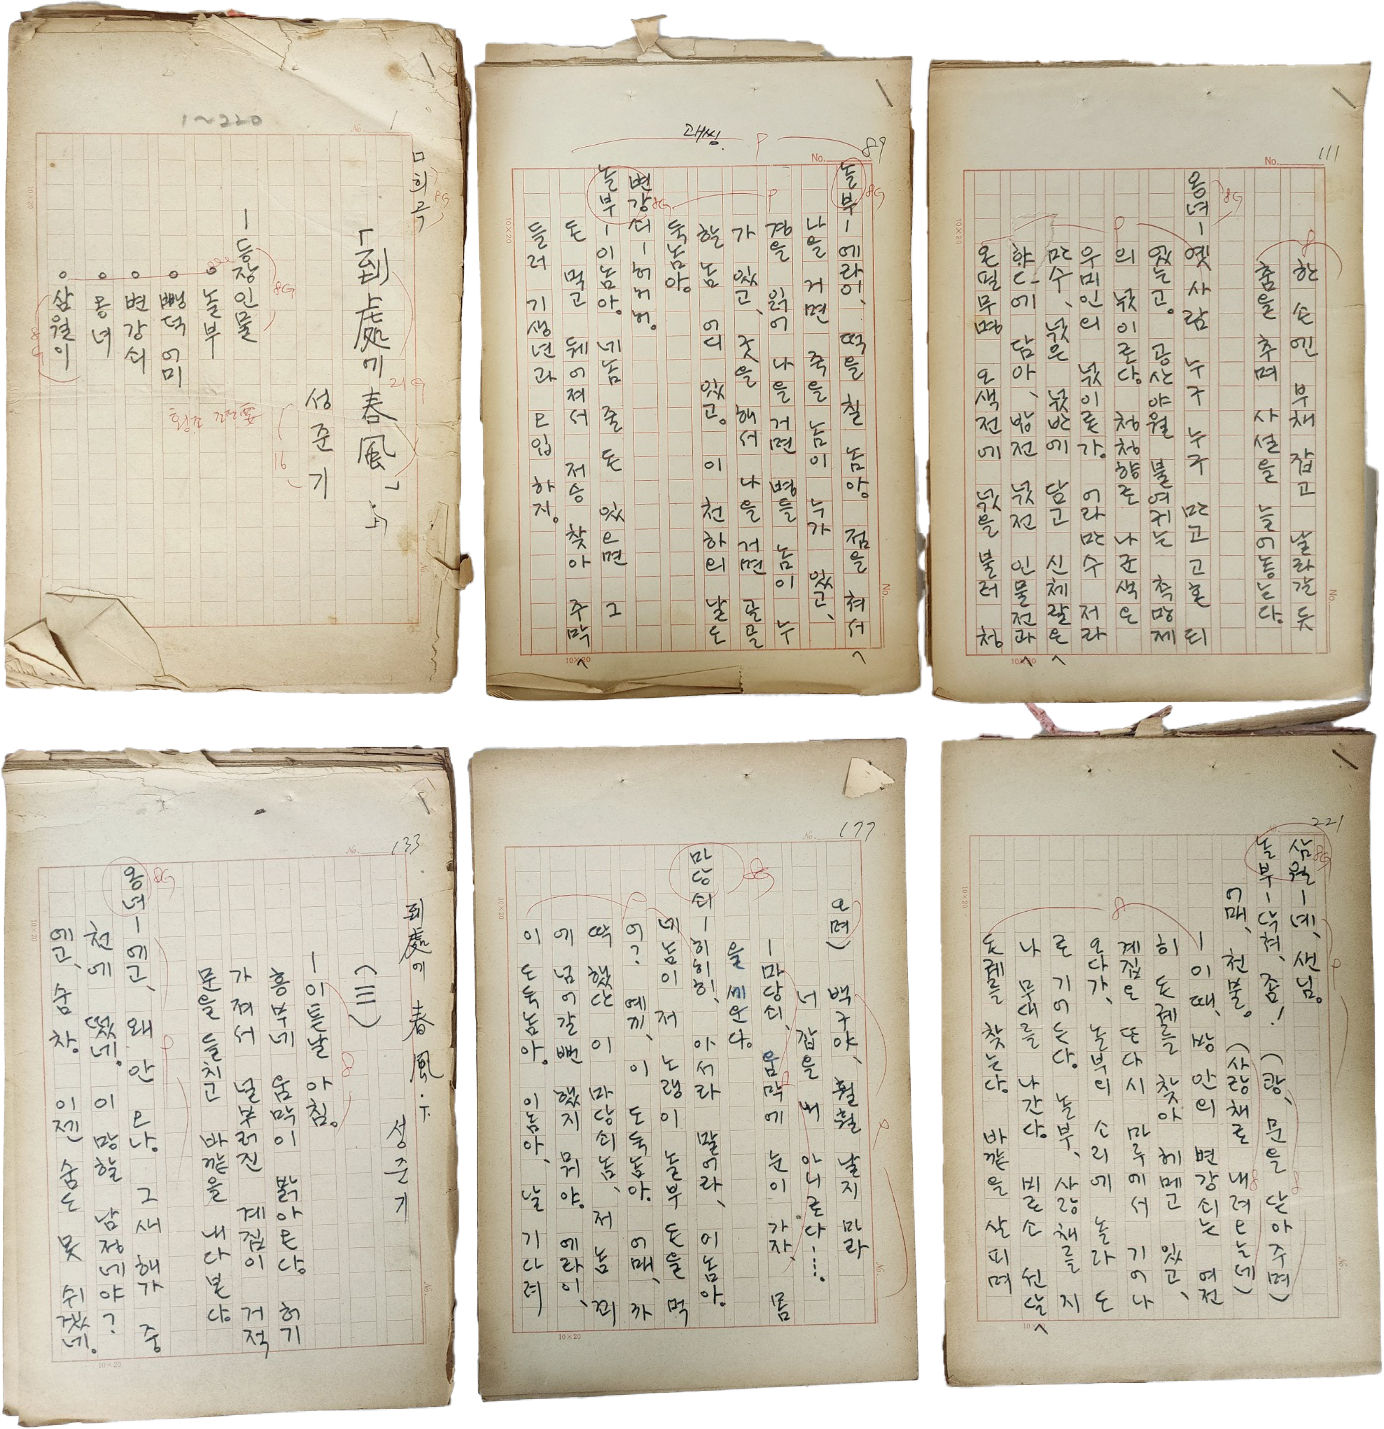 1~220
No. 1
口희곡
「到處에 春風」 上
성준기
ㅡ등장인물
놀부
뺑덕어미
변강쇠
옹녀
삼월이
16
21G
8G
89
No.
놀부ㅡ에라이, 떡을 칠 놈아. 점을 쳐서
나을 거면 죽을 놈이 누가 있고,
경을 읽어 나을 거면 병들 놈이 누
가 있고, 굿을 해서 나을 거면 곯을
할 놈 어디 있고. 이 천하의 날도
둑놈아.
변강쇠ㅡ허허허.
놀부ㅡ이놈아. 네놈 줄 돈 있으면 그
돈 먹고 뒈어져서 저승 찾아 주막
들러 기생년과 모입하지.
10×20
111
No.
한 손엔 부채 잡고 날라갈 듯
춤을 추며 사설을 늘어놓는다.
옹녀ㅡ옛사람 누구 누구 만고고혼 되
었는고. 공산야월 불여귀는 촉망제
의 넋이로다. 청청향로 나군색은
우미인의 넋이로가. 어라만수 저라
만수, 넋은 넋반에 담고 신체랄은
향드에 담아, 방전 넋전 인물전과
온필무명 오색전에 넋을 불러 청
10×20
133
到處에 春風·下
성준기
(三)
ㅡ이튿날 아침.
흥부네 움막이 밝아온다. 허기
가져서 널부러진 계집이 거적
문을 들치고 바깥을 내다본다.
옹녀ㅡ에고, 왜 안 오나. 그새 해가 중
천에 떴네. 이 망할 남정네야?
에고, 숨차. 이젠 숨도 못 쉬겠네.
10×20
177
오며) 백구야, 훨훨 날지 마라
너 잡을 내 아니로다….
ㅡ마당쇠, 움막에 눈이 가자, 몸
을 세운다.
마당쇠ㅡ히히히, 아서라 말어라, 이놈아.
네놈이 저 노랭이 놀부 돈을 먹
어? 예끼, 이 도둑놈아. 어매, 까
딱했단 이 마당쇠놈, 저 놈 꾀
에 넘어갈 뻔 했지 뭐야. 에라이,
이 도둑놈아. 이놈아, 날 기다려
10×20
221
삼월ㅡ네, 샌님.
놀부ㅡ닥쳐, 좀! (쾅, 문을 닫아주며)
어매, 천불. (사랑채로 내려오는데)
ㅡ이 때, 방 안의 변강쇠는 여전
히 돈궤를 찾아 헤메고 있고,
계집은 또다시 마루에서 기어나
오다가, 놀부의 소리에 놀라 도
로 기어든다. 놀부, 사랑채를 지
나 무대를 나간다. 비로소 선달
돈궤를 찾는다. 바깥을 살피며